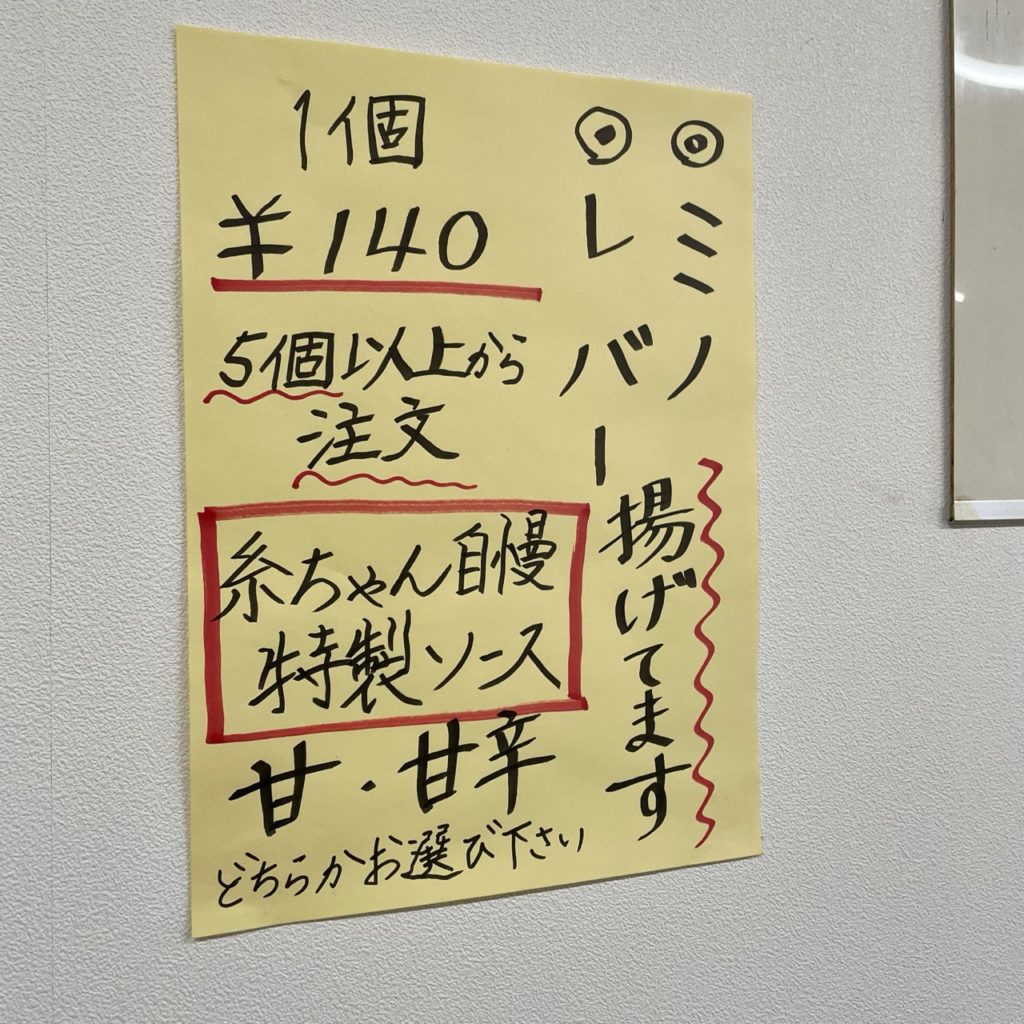 ◎ミノ
◎レバー
揚げてます
1個
¥140
5個以上から
注文
糸ちゃん自慢
特製ソース
甘・甘辛
どちらかお選び下さい